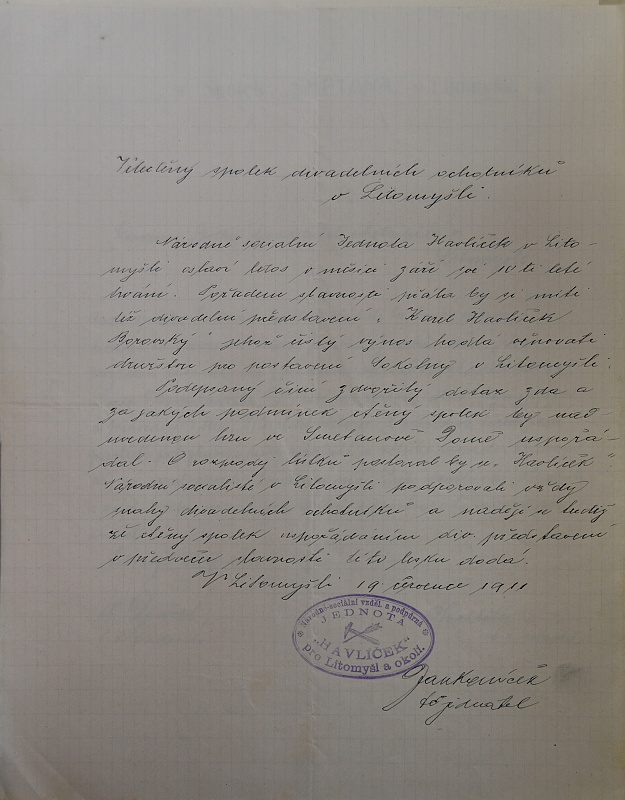 Velectěný spolek divadelních ochotníků
v Litomyšli.
Národně sociální Jednota Havlíček v Lito-
myšli oslaví letos v měsíci září své 10ti leté
trvání. Pořadem slavnosti přála by si míti
též divadelní představení „Karel Havlíček
Borovský" jehož čistý výnos hodlá věnovati
družstvu pro postavení Sokolny v Litomyšli.
Podepsaný činí zdvořilý dotaz zda a
za jakých podmínek ctěný spolek by nad-
uvedenou hru ve Smetanově Domě uspořá-
dal. O rozprodej lístků postaral by se „Havlíček"
Národní socialisté v Litomyšli podporovali vždy
snahy divadelních ochotníků a nadějí se tudíž
že ctěný spolek uspořádáním div. představení
v předvečer slavnosti této lesku dodá.
V Litomyšli 19. července 1911
Národně-sociální vzděl. a podpůrná
JEDNOTA
„HAVLÍČEK"
pro Litomyšl a okolí.
Jan
t. č. jednatel